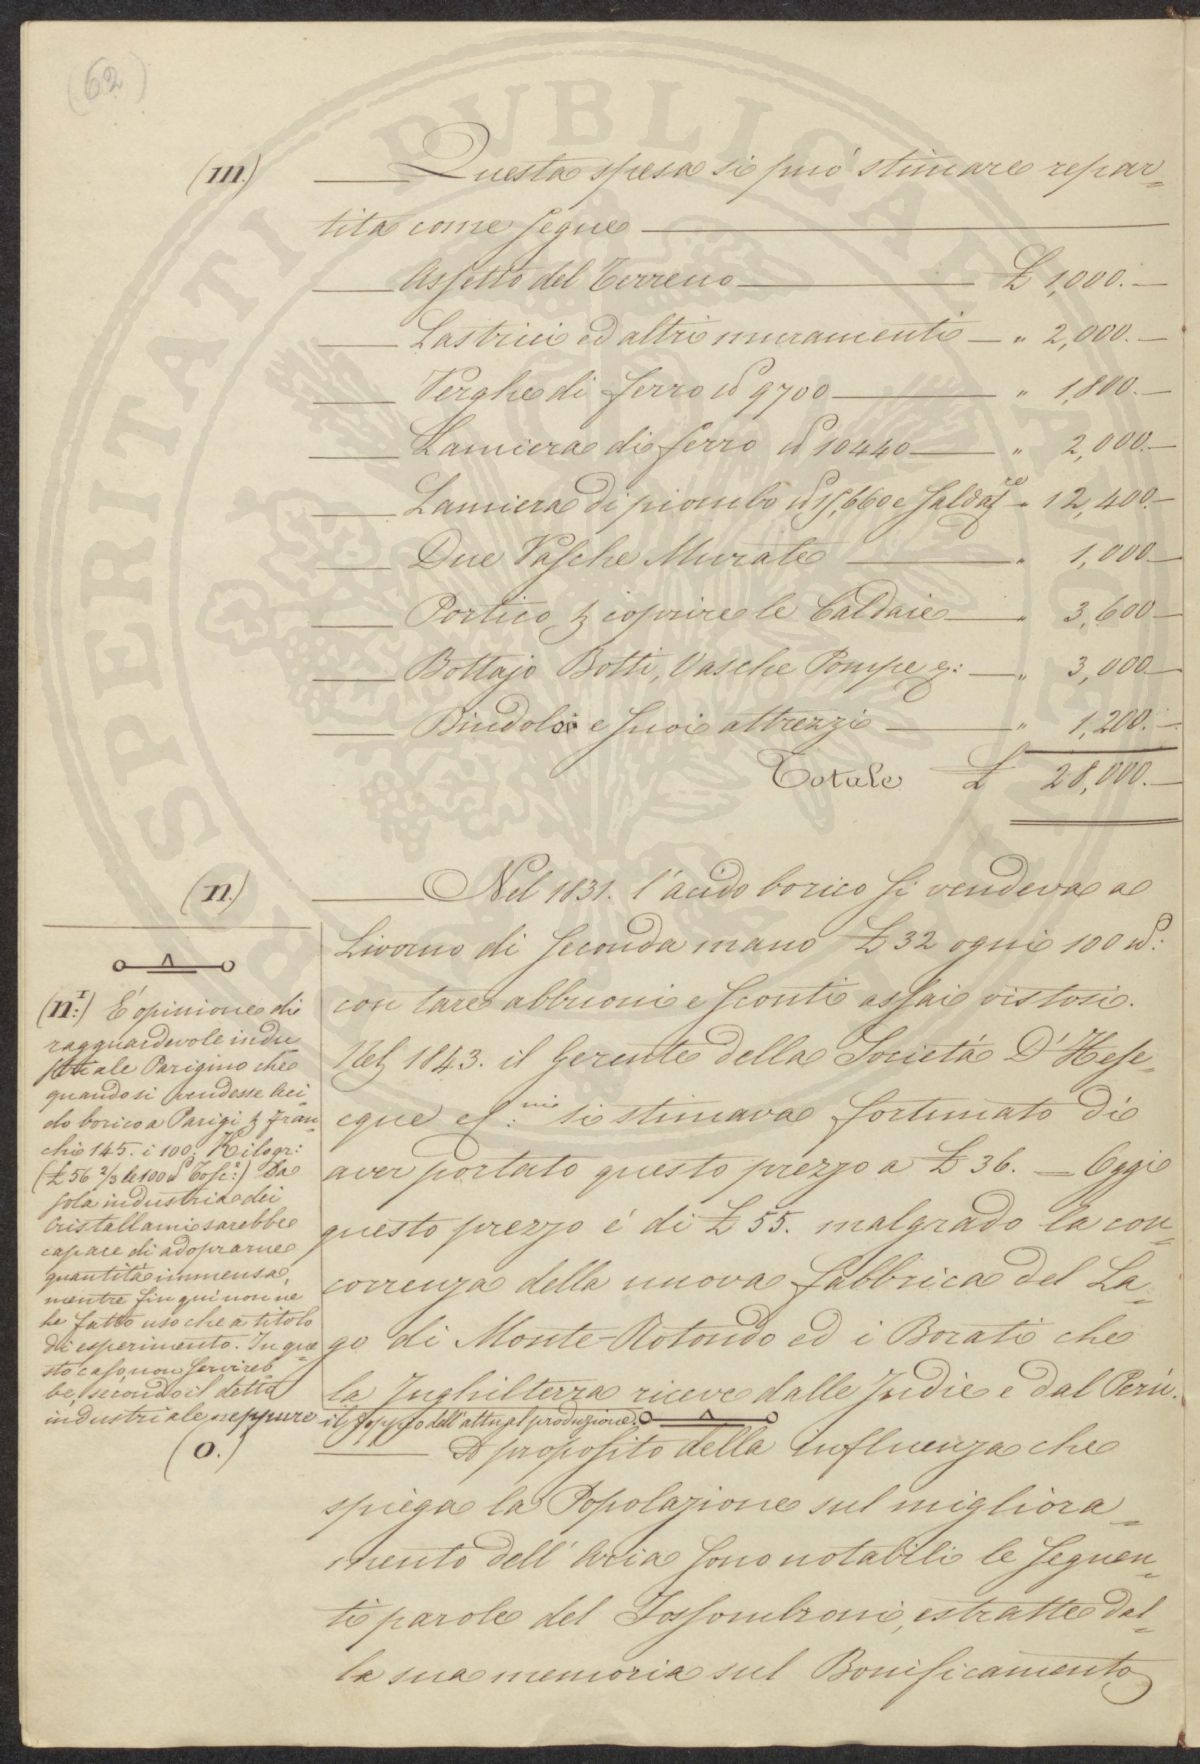 (62)
(m.) Questa spesa si può stimare repar-
tita come segue
Assetto del Terreno £ 1,000.
Lastrici ed altri muramenti " 2,000.
Verghe di ferro ℔ 9700 " 1,800.
Lamiera di ferro ℔ 10440 " 2,000.
Lamiera di piombo ℔ 15,660 e saldare " 12,400.
Due Vasche Murate " 1,000
Portico p coprire le Caldaie " 3,600
Bottajo Botti, Vasche Pompe &: " 3,000
Bindoli e suoi attrezzi " 1,200.
Totale £ 28,000.
(n.) Nel 1831. l'acido borico si vendeva a
Livorno di seconda mano £ 32 ogni 100 ℔:
con tare abbuoni e sconti assai vistosi.
Nel 1843. il Gerente della Società D'Hese-
cque si stimava fortunato di
aver portato questo prezzo a £ 36. — Oggi
questo prezzo é di £ 55. malgrado la con-
correnza della nuova fabbrica del La-
go di Monte-Rotondo ed i Borati che
la Inghilterra riceve dalle Indie e dal Perù.
(n.I:) E' opinione di
ragguardevole indu
striale Parigino che
quando si vendesse Aci-
do borico a Parigi p Fran-
chi 145. i 100: Kilogr:
(£ 56 2/3 le 100 ℔ Tosc:e) la
sola industria dei
Cristallami sarebbe
capace di adoprarne
quantità immensa,
mentre fin quì non ne
ha fatto uso che a titolo
di esperimento. In que-
sto caso non servireb-
be, secondo il detto
industriale neppure il doppio dell'attual produzione.
(o.) A proposito della influenza che
spiega la Popolazione sul migliora-
mento dell'Aria sono notabili le seguen-
ti parole del Fossombroni, estratte dal-
la sua memoria sul Bonificamento
PROSPERITATI PUBLICAE AUGENDAE